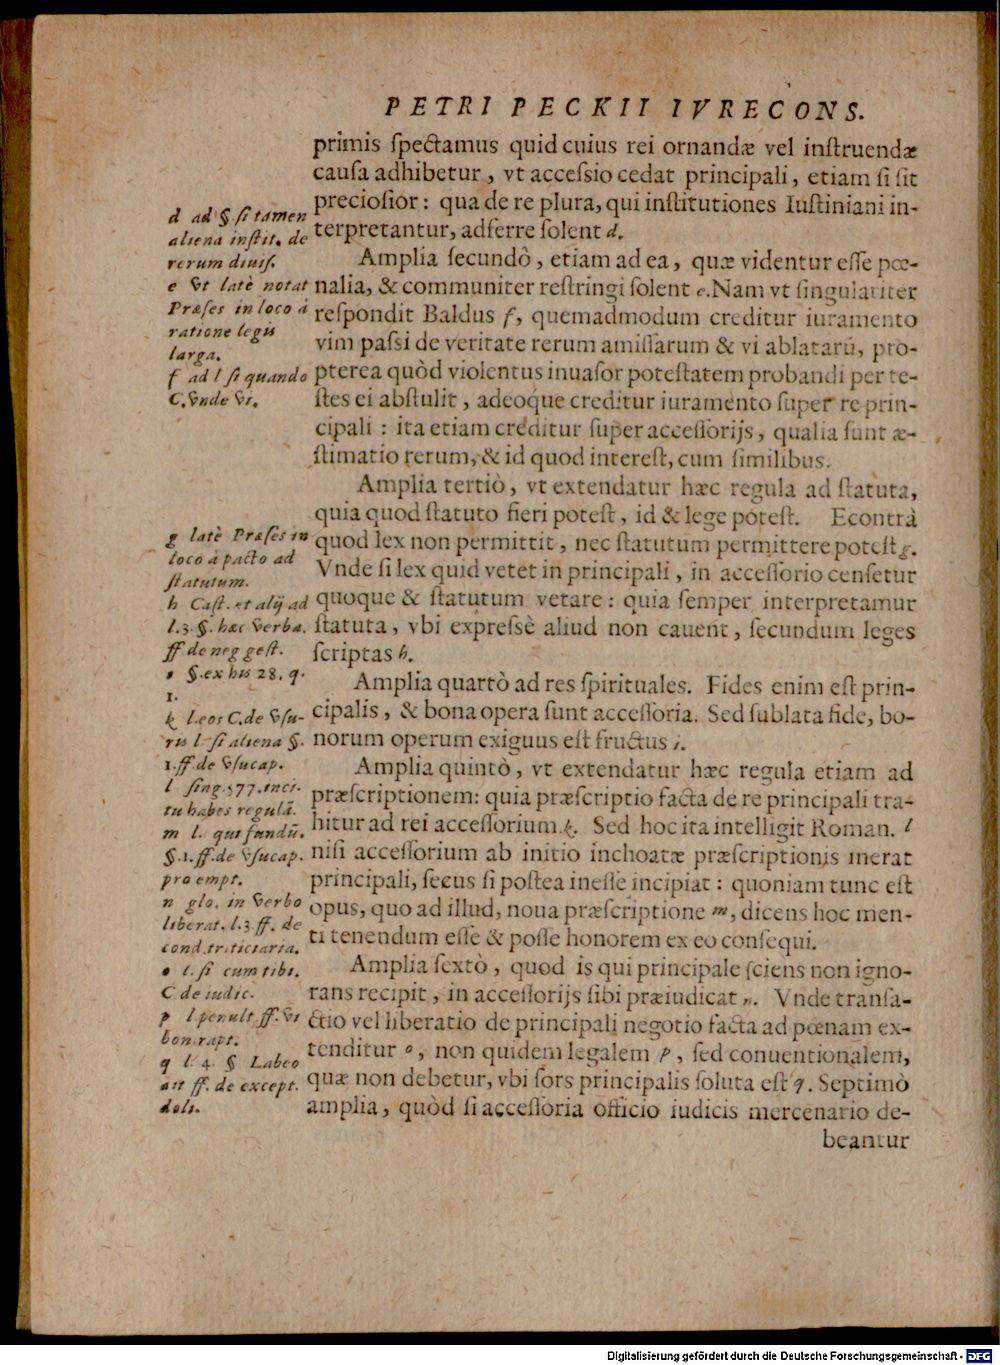 PETRI PECKII IVRECONS.
primis ſpectamus quid cuius rei ornandæ vel inſtruendæ
cauſa adhibetur, vt acceſsio cedat principali, etiam ſi ſit
precioſior: qua de re plura, qui inſtitutiones Iuſtiniani in-
terpretantur, adferre ſolent d.
Amplia ſecundò, etiam ad ea, quæ videntur eſſe pœ-
nalia, & communiter reſtringi ſolent e. Nam vt ſingulariter
reſpondit Baldus f, quemadmodum creditur iuramento
vim paſsi de veritate rerum amiſſarum & vi ablatarū, pro-
pterea quòd violentus inuaſor poteſtatem probandi per te-
ſtes ei abſtulit, adeoque creditur iuramento ſuper re prin-
cipali: ita etiam creditur ſuper acceſſorijs, qualia ſunt æ-
ſtimatio rerum, & id quod intereſt, cum ſimilibus.
Amplia tertiò, vt extendatur hæc regula ad ſtatuta,
quia quod ſtatuto fieri poteſt, id & lege poteſt. Econtrà
quod lex non permittit, nec ſtatutum permittere poteſt g.
Vnde ſi lex quid vetet in principali, in acceſſorio cenſetur
quoque & ſtatutum vetare: quia ſemper interpretamur
ſtatuta, vbi expreſsè aliud non cauent, ſecundum leges
ſcriptas h.
Amplia quartò ad res ſpirituales. Fides enim eſt prin-
cipalis, & bona opera ſunt acceſſoria. Sed ſublata fide, bo-
norum operum exiguus eſt fructus i.
Amplia quintò, vt extendatur hæc regula etiam ad
præſcriptionem: quia præſcriptio facta de re principali tra-
hitur ad rei acceſſorium k. Sed hoc ita intelligit Roman. l
niſi acceſſorium ab initio inchoatæ præſcriptionis inerat
principali, ſecus ſi poſtea ineſſe incipiat: quoniam tunc eſt
opus, quo ad illud, noua præſcriptione m, dicens hoc men-
ti tenendum eſſe & poſſe honorem ex eo conſequi.
Amplia ſextò, quod is qui principale ſciens non igno-
rans recipit, in acceſſorijs ſibi præiudicat n. Vnde tranſa-
ctio vel liberatio de principali negotio facta ad pœnam ex-
tenditur o, non quidem legalem p, ſed conuentionalem,
quæ non debetur, vbi ſors principalis ſoluta eſt q. Septimò
amplia, quòd ſi acceſſoria officio iudicis mercenario de-
beantur
d ad § ſi tamen
aliena inſtit. de
rerum diuiſ.
e vt latè notat
Præſes in loco à
ratione legis
larga.
f ad l ſi quando
C. vnde vi.
g latè Præſes in
loco à pacto ad
ſtatutum.
h Caſt. et alij ad
l.3.§. hæc verba.
ff de neg geſt.
i §.ex his 28. q.
1.
k l.eos C.de vſu-
ris l ſi aliena §.
1.ff.de vſucap.
l ſing.577.inci.
tu habes regulā.
m l. qui fundū.
§.1.ff.de vſucap.
pro empt.
n glo. in verbo
liberat. l.3 ff. de
cond.triticiaria.
o l. ſi cum tibi.
C de iudic.
p l penult ff. vi
bon.rapt.
q l. 4. § Labeo
ait ff. de except.
doli.
Digitalisierung gefördert durch die Deutsche Forschungsgemeinschaft - DFG